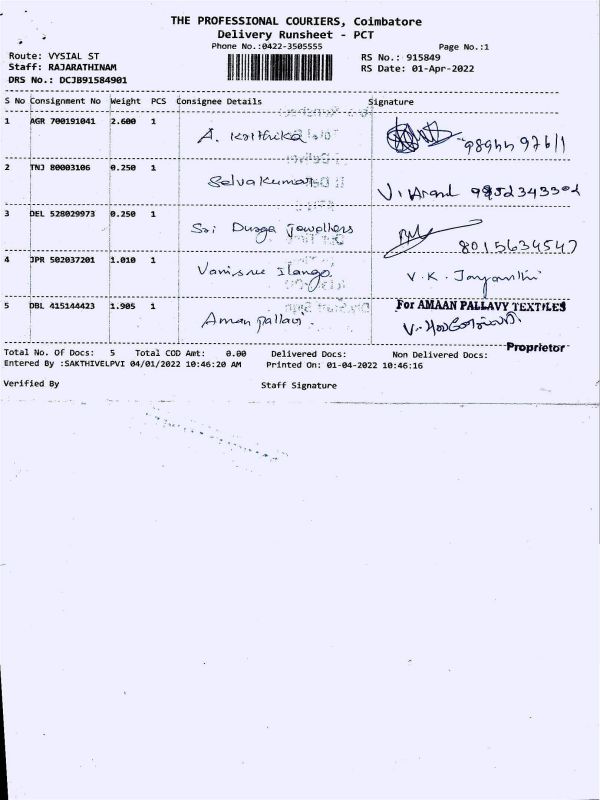 THE PROFESSIONAL COURIERS, Coimbatore
Delivery Runsheet - PCT
Phone No.:0422-3505555 Page No.:1
Route: VYSIAL ST RS No.: 915849
Staff: RAJARATHINAM RS Date: 01-Apr-2022
DRS No.: DCJB91584901
S No Consignment No Weight PCS Consignee Details Signature
1 AGR 700191041 2.600 1
A. Karthika
2 TNJ 80003106 0.250 1
Selvakumar V. Anand 9952343302
3 DEL 528029973 0.250 1
Sri Durga Jewellers 8015634547
4 JPR 502037201 1.010 1
Vanisree Ilango V. K.
5 DBL 415144423 1.905 1 For AMAAN PALLAVY TEXTILES
Aman pallavi.
Proprietor
Total No. Of Docs: 5 Total COD Amt: 0.00 Delivered Docs: Non Delivered Docs:
Entered By :SAKTHIVELPVI 04/01/2022 10:46:20 AM Printed On: 01-04-2022 10:46:16
Verified By Staff Signature